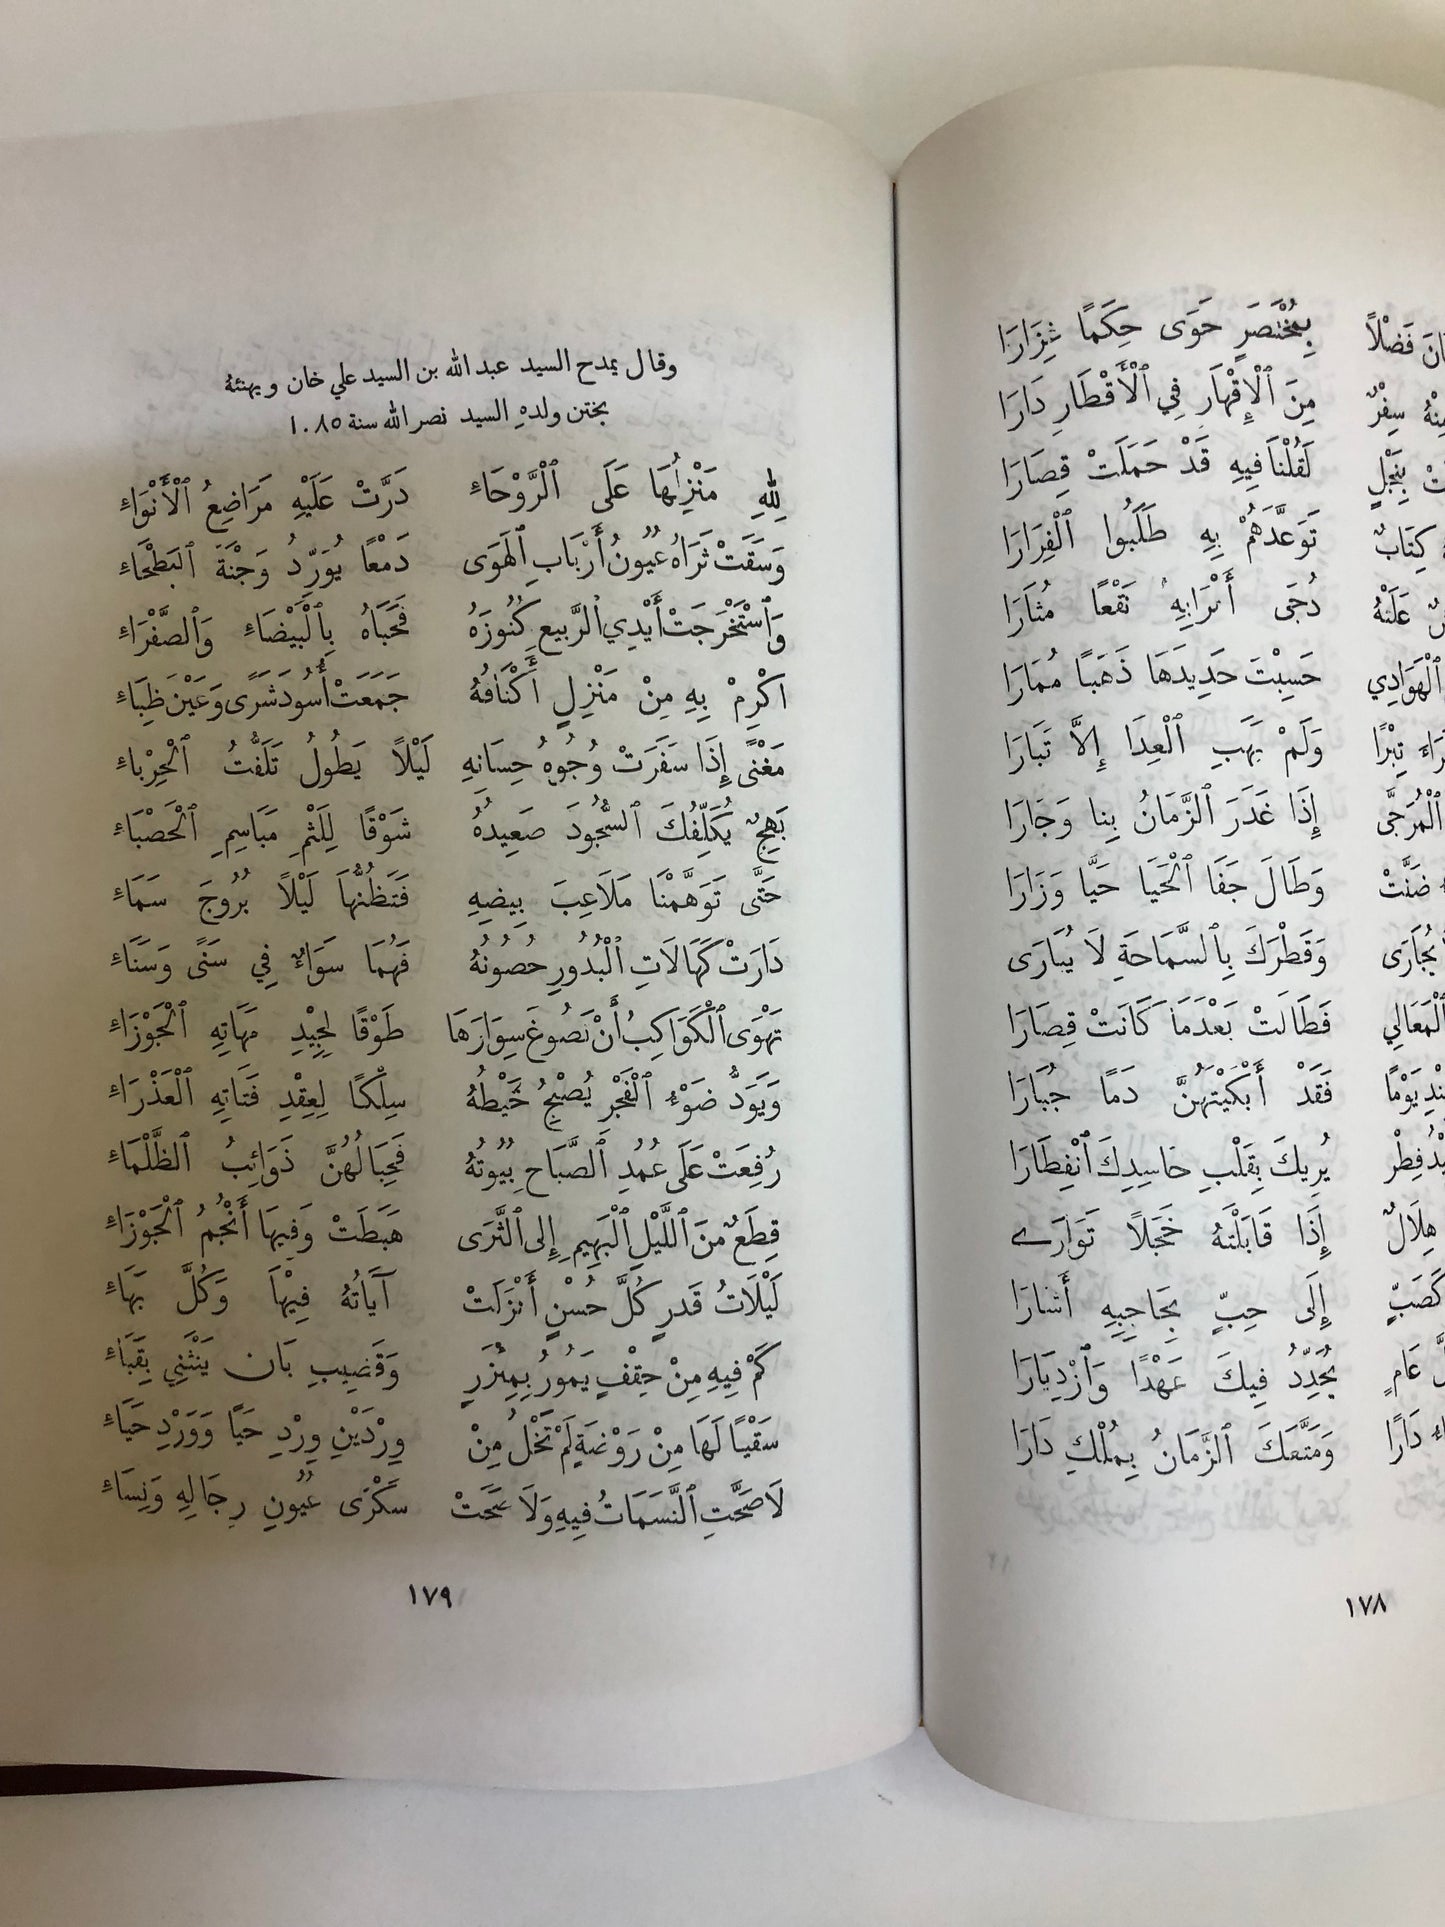 ـانَ فَضْلاً بِمُخْتَصَرٍ حَوَى حِكَمًا غِزَارَا
ـنْهُ سِفْرٌ مِنَ ٱلْإِقْهَارِ فِي ٱلْأَقْطَارِ دَارَا
ـتْ بِنَجْلٍ لَقُلْنَا فِيهِ قَدْ حَمَلَتْ قِصَارَا
كِتَابٌ تَوَعَّدَهُمْ بِهِ طَلَبُوا ٱلْفِرَارَا
عَلَتْهُ دُجَى أَتْرَابِهِ نَقْعًا مُثَارَا
ٱلْهَوَادِي حَسِبْتَ حَدِيدَهَا ذَهَبًا مُمَارَا
ـرَاءَ تِبْرًا وَلَمْ يَهَبِ ٱلْعِدَا إِلاَّ تَبَارَا
ٱلْمُرَجَّى إِذَا غَدَرَ ٱلزَّمَانُ بِنا وَجَارَا
ضَنَّتْ وَطَالَ جَفَا ٱلْحَيَا حَيًّا وَزَارَا
يُجَارَى وَقَطْرَكَ بِٱلسَّمَاحَةِ لاَ يُبَارَى
ٱلْمَعَالِي فَطَالَتْ بَعْدَمَا كَانَتْ قِصَارَا
ـنْدِ يَوْمًا فَقَدْ أَبْكَيْتَهُنَّ دَمًا جُبَارَا
ـدُ فِطْرٍ يُرِيكَ بِقَلْبِ حَاسِدِكَ ٱنْفِطَارَا
هِلاَلٌ إِذَا قَابَلْتَهُ خَجَلاً تَوَارَى
كَصَبٍّ إِلَى حِبٍّ بِحَاجِبِهِ أَشَارَا
عَامٍ يُجَدِّدُ فِيكَ عَهْدًا وَٱزْدِيَارَا
دَارًا وَمَتَّعَكَ ٱلزَّمَانُ بِمُلْكِ دَارَا
١٧٨
وقال يمدح السيد عبد الله بن السيد علي خان ويهنئهُ
بختن ولدهِ السيد نصر الله سنة ١٠٨٥
لِلهِ مَنْزِلُهَا عَلَى ٱلْرَّوْحَاءِ دَرَّتْ عَلَيْهِ مَرَاضِعُ ٱلْأَنْوَاءِ
وَسَقَتْ ثَرَاهُ عُيُونُ أَرْبَابِ ٱلْهَوَى دَمْعًا يُوَرِّدُ وَجْنَةَ ٱلبَطْحَاءِ
وَٱسْتَخْرَجَتْ أَيْدِي ٱلرَّبِيعِ كُنُوزَهُ فَحَبَاهُ بِٱلْبَيْضَاءِ وَٱلصَّفْرَاءِ
اكْرِمْ بِهِ مِنْ مَنْزِلٍ أَكْنَافُهُ جَمَعَتْ أُسُودَ شَرًى وَعَيْنَ ظِبَاءِ
مَغْنًى إِذَا سَفَرَتْ وُجُوهُ حِسَانِهِ لَيْلاً يَطُولُ تَلَفُّتُ ٱلْحِرْبَاءِ
بَهِجٌ يُكَلِّفُكَ ٱلسُّجُودَ صَعِيدُهُ شَوْقًا لِلَثْمِ مَبَاسِمِ ٱلْحَصْبَاءِ
حَتَّى تَوَهَّمْنَا مَلاَعِبَ بِيضِهِ فَتَظُنُّهَا لَيْلاً بُرُوجَ سَمَاءِ
دَارَتْ كَهَالاَتِ ٱلْبُدُورِ حُصُونُهُ فَهُمَا سَوَاءٌ فِي سَنًى وَسَنَاءِ
تَهْوَى ٱلْكَوَاكِبُ أَنْ تَصُوغَ سِوَارَهَا طَوْقًا لِجِيْدِ مَهَاتِهِ ٱلْجَوْزَاءِ
وَيَوَدُّ ضَوْءُ ٱلْفَجْرِ يُصْبِحُ خَيْطُهُ سِلْكًا لِعِقْدِ فَتَاتِهِ ٱلْعَذْرَاءِ
رُفِعَتْ عَلَى عُمُدِ ٱلصَّبَاحِ بِيُوتُهُ فَحِبَالُهُنَّ ذَوَائِبُ ٱلظَّلْمَاءِ
قِطَعٌ مِنَ ٱللَّيْلِ ٱلْبَهِيمِ إِلى ٱلثَّرَى هَبَطَتْ وَفِيهَا أَنْجُمُ ٱلْجَوْزَاءِ
لَيْلاَتُ قَدرٍ كُلَّ حُسْنٍ أَنْزَلَتْ آيَاتُهُ فِيْهَا وَكُلَّ بَهَاءِ
كَمْ فِيهِ مِنْ حِقْفٍ يَمُورُ بِمِئْزَرٍ وَقَضِيبِ بَان يَنْثَنِي بِقَبَاءِ
سَقْيًا لَهَا مِنْ رَوْضَةٍ لَمْ تَخْلُ مِنْ وِرْدَيْنِ وِرْدِ حَيًا وَوَرْدِ حَيَاءِ
لاَ صَحَّتِ ٱلنَّسَمَاتُ فِيهِ وَلاَ صَحَتْ سَكْرَى عُيُونِ رِجَالِهِ وَنِسَاءِ
١٧٩